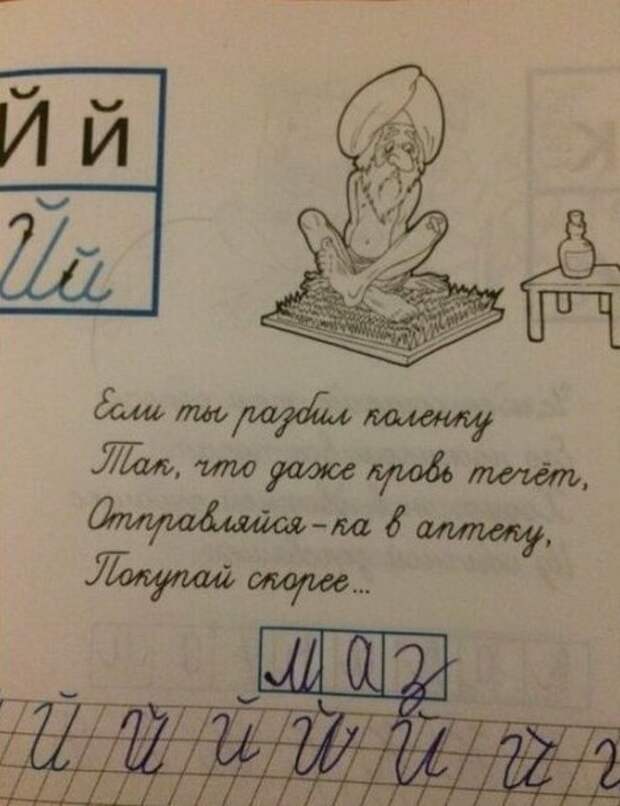 Й й
Й й
Если ты разбил коленку
Так, что даже кровь течёт,
Отправляйся-ка в аптеку,
Покупай скорее...
маз
й й й й й й